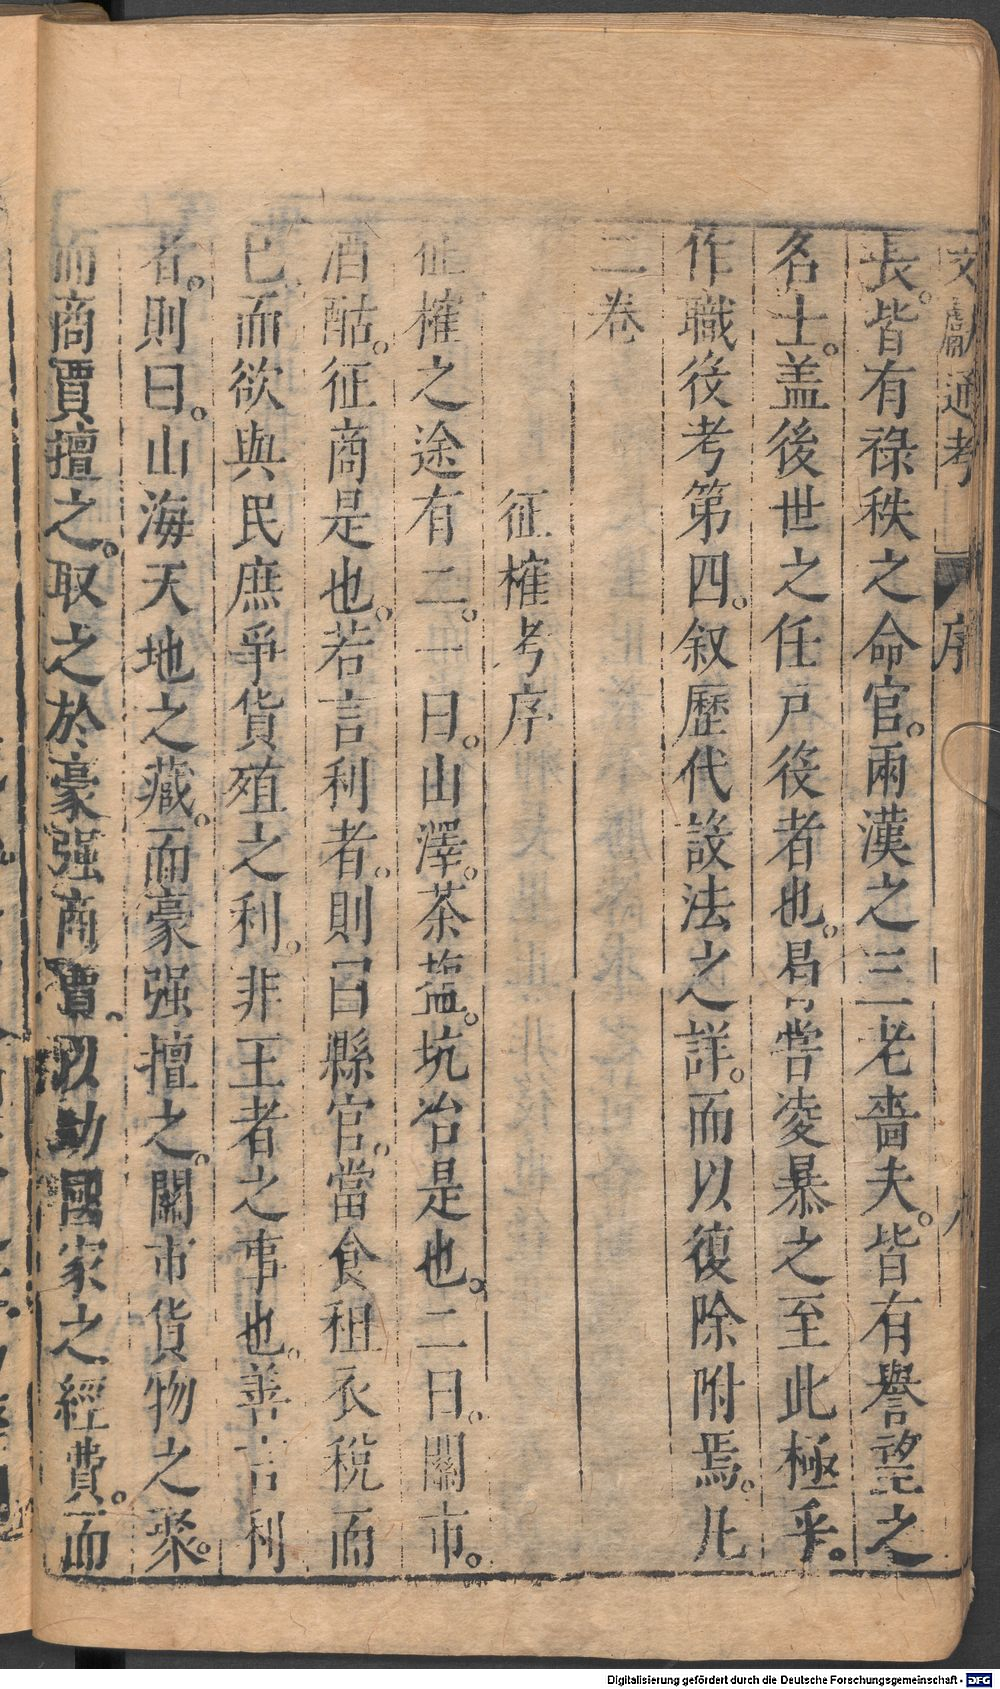 文獻通考 序 八
長。皆有祿秩之命官。兩漢之三老嗇夫。皆有譽望之
名士。盖後世之任戶役者也。曷嘗凌暴之至此極乎。
作職役考第四。叙歷代設法之詳。而以復除附焉。凡
二卷
征榷考序
征榷之途有二。一曰。山澤。茶盐。坑冶是也。二曰。關市。
酒酤。征商是也。若言利者。則曰縣官。當食租衣稅而
已。而欲與民庶爭貨殖之利。非王者之事也。善言利
者。則曰。山海天地之藏。而豪强擅之。關市貨物之聚。
而商賈擅之。取之於豪强商賈。以助國家之經費。而
Digitalisierung gefördert durch die Deutsche Forschungsgemeinschaft - DFG